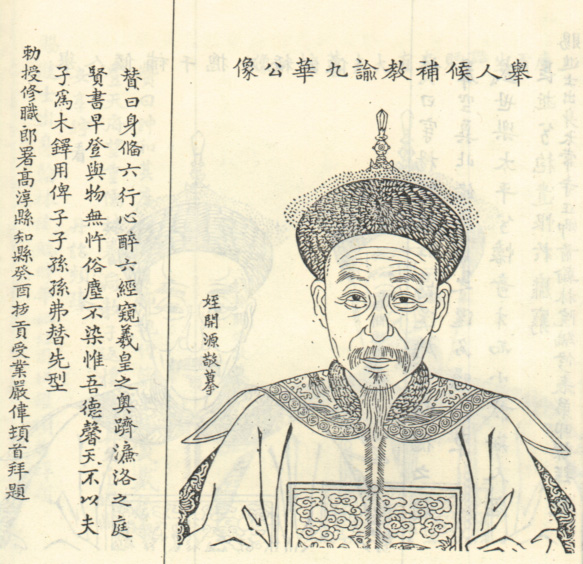 舉人候補教諭九華公像
姪開源敬摹
贊曰身脩六行心醉六經窺羲皇之奧躋濂洛之庭
賢書早登與物無忤俗塵不染惟吾德馨天不以夫
子爲木鐸用俾子子孫孫弗替先型
勅授修職郎署高淳縣知縣癸酉拔貢受業嚴偉頓首拜題